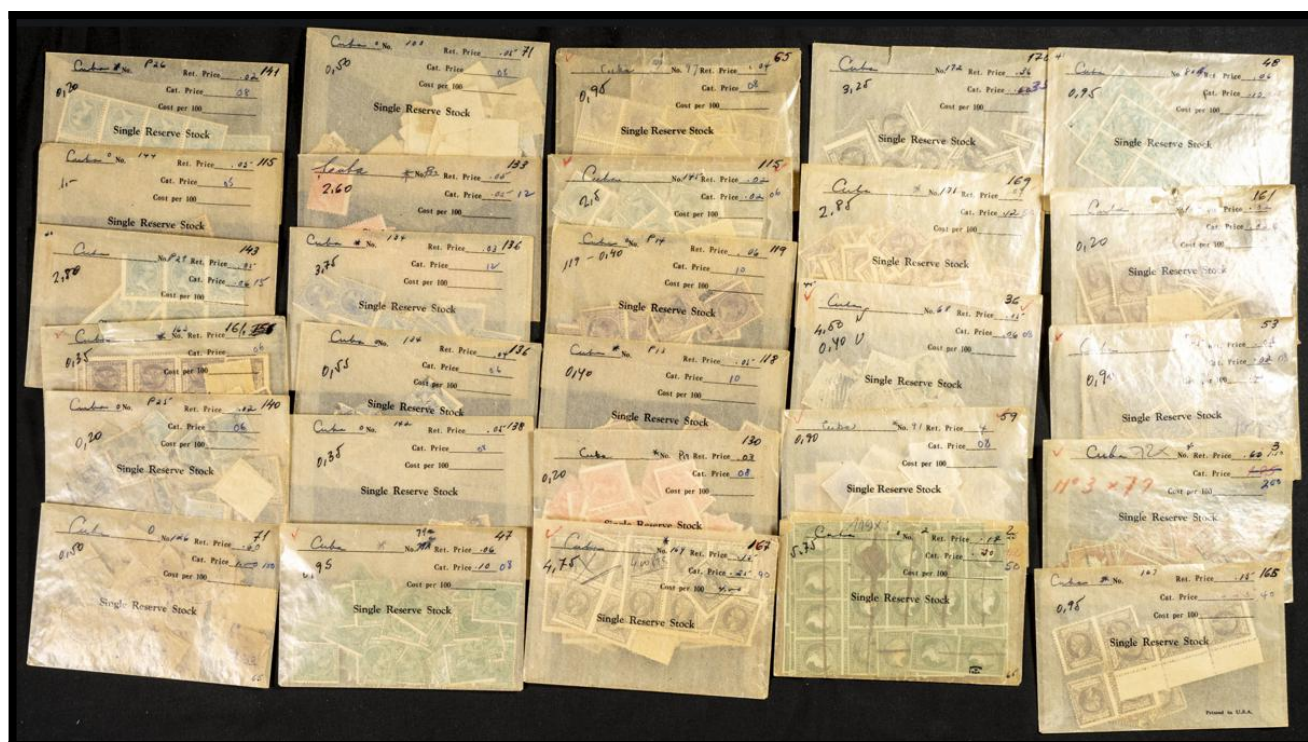 Cuba * No. P26 Ret. Price .02 141
0,20 Cat. Price 08
Cost per 100
Single Reserve Stock
Cuba o No. 144 Ret. Price .05 115
1.- Cat. Price 05
Cost per 100
Single Reserve Stock
Cuba No. P29 Ret. Price .05 143
2,50 Cat. Price .06 15
Cost per 100
Cuba * No. 162 Ret. Price 161
0,35 Cat. Price 06
Cost per 100
Cuba o No. P25 Ret. Price .02 140
0,20 Cat. Price 06
Cost per 100
Single Reserve Stock
Cuba o No. 126 Ret. Price 71
0,50 Cat. Price
Cost per 100
Single Reserve Stock
65
Cuba o No. Ret. Price .05 71
0,50 Cat. Price 05
Cost per 100
Single Reserve Stock
* No. Ret. Price .05 133
2.60 Cat. Price .05 12
Cost per 100
Cuba * No. 134 Ret. Price .03 136
3,75 Cat. Price 12
Cost per 100
Single Reserve Stock
Cuba o No. 134 Ret. Price 136
0,55 Cat. Price 06
Cost per 100
Single Reserve Stock
Cuba o No. 142 Ret. Price .05 138
0,35 Cat. Price
Cost per 100
Single Reserve Stock
Cuba * No. Ret. Price .06 47
0,95 Cat. Price .10 08
Cost per 100
Single Reserve Stock
Cuba No. 97 Ret. Price .04 65
0,95 Cat. Price 08
Cost per 100
Single Reserve Stock
Cuba No. 145 Ret. Price .02 115
2,5 Cat. Price .02 06
Cost per 100
Single Reserve Stock
Cuba No. P14 Ret. Price .06 119
119 - 0,40 Cat. Price 10
Cost per 100
Single Reserve Stock
Cuba * No. P13 Ret. Price .05 118
0,40 Cat. Price 10
Cost per 100
Single Reserve Stock
Cuba * No. Ret. Price .03 130
0,20 Cat. Price 08
Cost per 100
Single Reserve Stock
Cuba * No. 169 Ret. Price .15 167
4,75 Cat. Price .25 90
Cost per 100
Single Reserve Stock
Cuba No. 172 Ret. Price .36
3,25 Cat. Price
Cost per 100
Single Reserve Stock
Cuba * No. 171 Ret. Price 169
2,85 Cat. Price
Cost per 100
Single Reserve Stock
Cuba No. 68 Ret. Price .05 36
4,50 U Cat. Price .06 08
0,40 U Cost per 100
Single Reserve Stock
Cuba * No. 91 Ret. Price 59
0,90 Cat. Price 08
Cost per 100
Single Reserve Stock
Cuba No. 2 Ret. Price .17 2
5,75 Cat. Price .30
Cost per 100 50
Single Reserve Stock
65
Cuba No. Ret. Price .06 48
0,95 Cat. Price .12
Cost per 100
Single Reserve Stock
Cuba No. Ret. Price 161
0,20 Cat. Price
Cost per 100
Single Reserve Stock
Cuba Ret. Price 53
0,9 Cat. Price .02 03
Cost per 100
Single Reserve Stock
Cuba 72x * No. Ret. Price .60 3
Cat. Price
No 3 x 77 Cost per 100 200
Single Reserve Stock
Cuba * No. 167 Ret. Price .15 165
0,95 Cat. Price 40
Cost per 100
Single Reserve Stock
Printed in U.S.A.